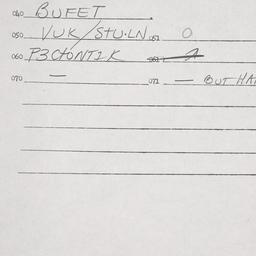 040 BUFET
050 VUK/STU.LN 051 0
060 P3CHONTIK
070 — 071 — OUT HA